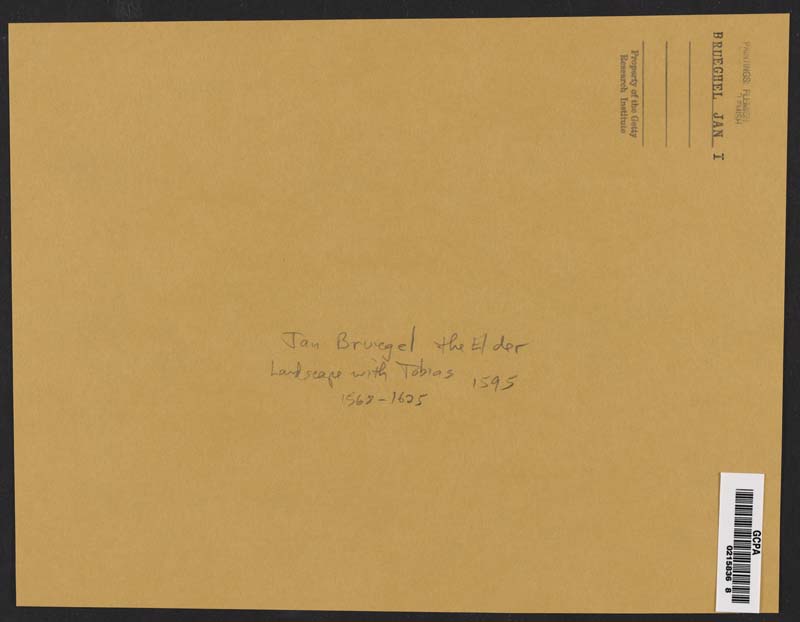 PAINTINGS: FLEMISH
BRUEGHEL JAN I
Property of the Getty
Research Institute
Jan Bruegel the Elder
Landscape with Tobias 1595
1568-1625
GCPA
0215836 8